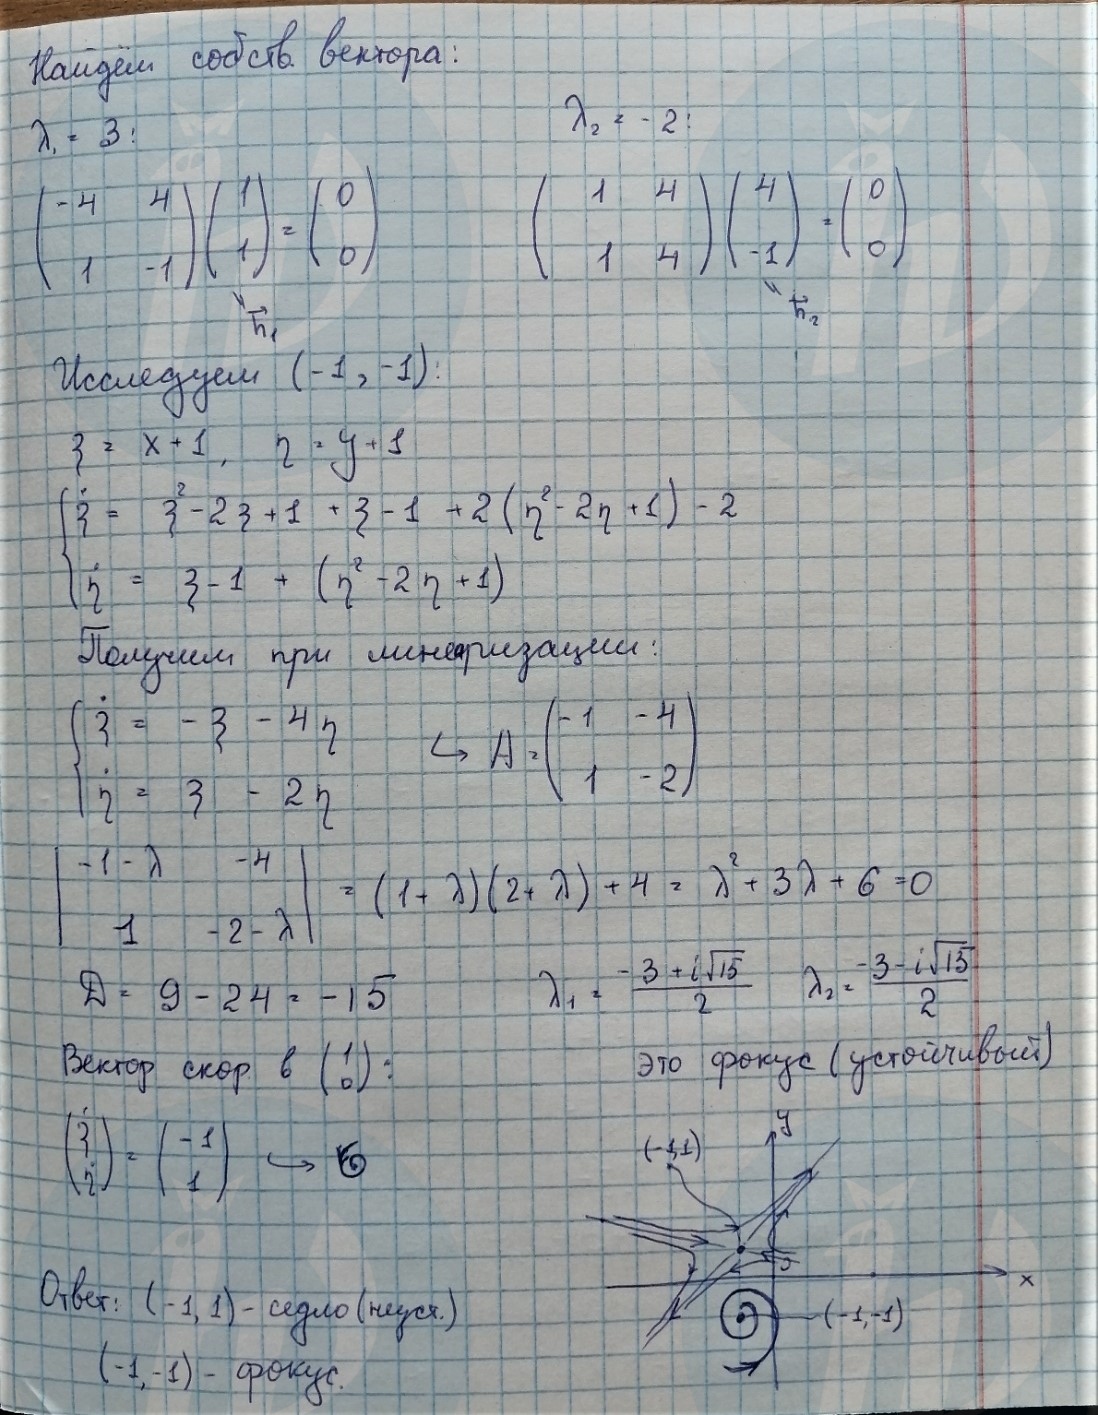 Найдём собств. вектора:
λ₁ = 3:
λ₂ = -2:
(-4 4; 1 -1) (1; 1) = (0; 0)
h⃗₁
(1 4; 1 4) (4; -1) = (0; 0)
h⃗₂
Исследуем (-1, -1):
ξ = x+1, η = y+1
ξ̇ = ξ² - 2ξ + 1 + ξ - 1 + 2(η² - 2η + 1) - 2
η̇ = ξ - 1 + (η² - 2η + 1)
Получим при линеаризации:
ξ̇ = -ξ - 4η
η̇ = ξ - 2η
↪ A = (-1 -4; 1 -2)
|-1-λ -4; 1 -2-λ| = (1+λ)(2+λ) + 4 = λ² + 3λ + 6 = 0
D = 9 - 24 = -15
λ₁ = (-3 + i√15)/2 λ₂ = (-3 - i√15)/2
Вектор скор в (1; 0):
это фокус (устойчивый)
(ξ̇; η̇) = (-1; 1) ↪
y
(-1,1)
x
(-1,-1)
Ответ: (-1, 1) - седло (неуст.)
(-1, -1) - фокус.